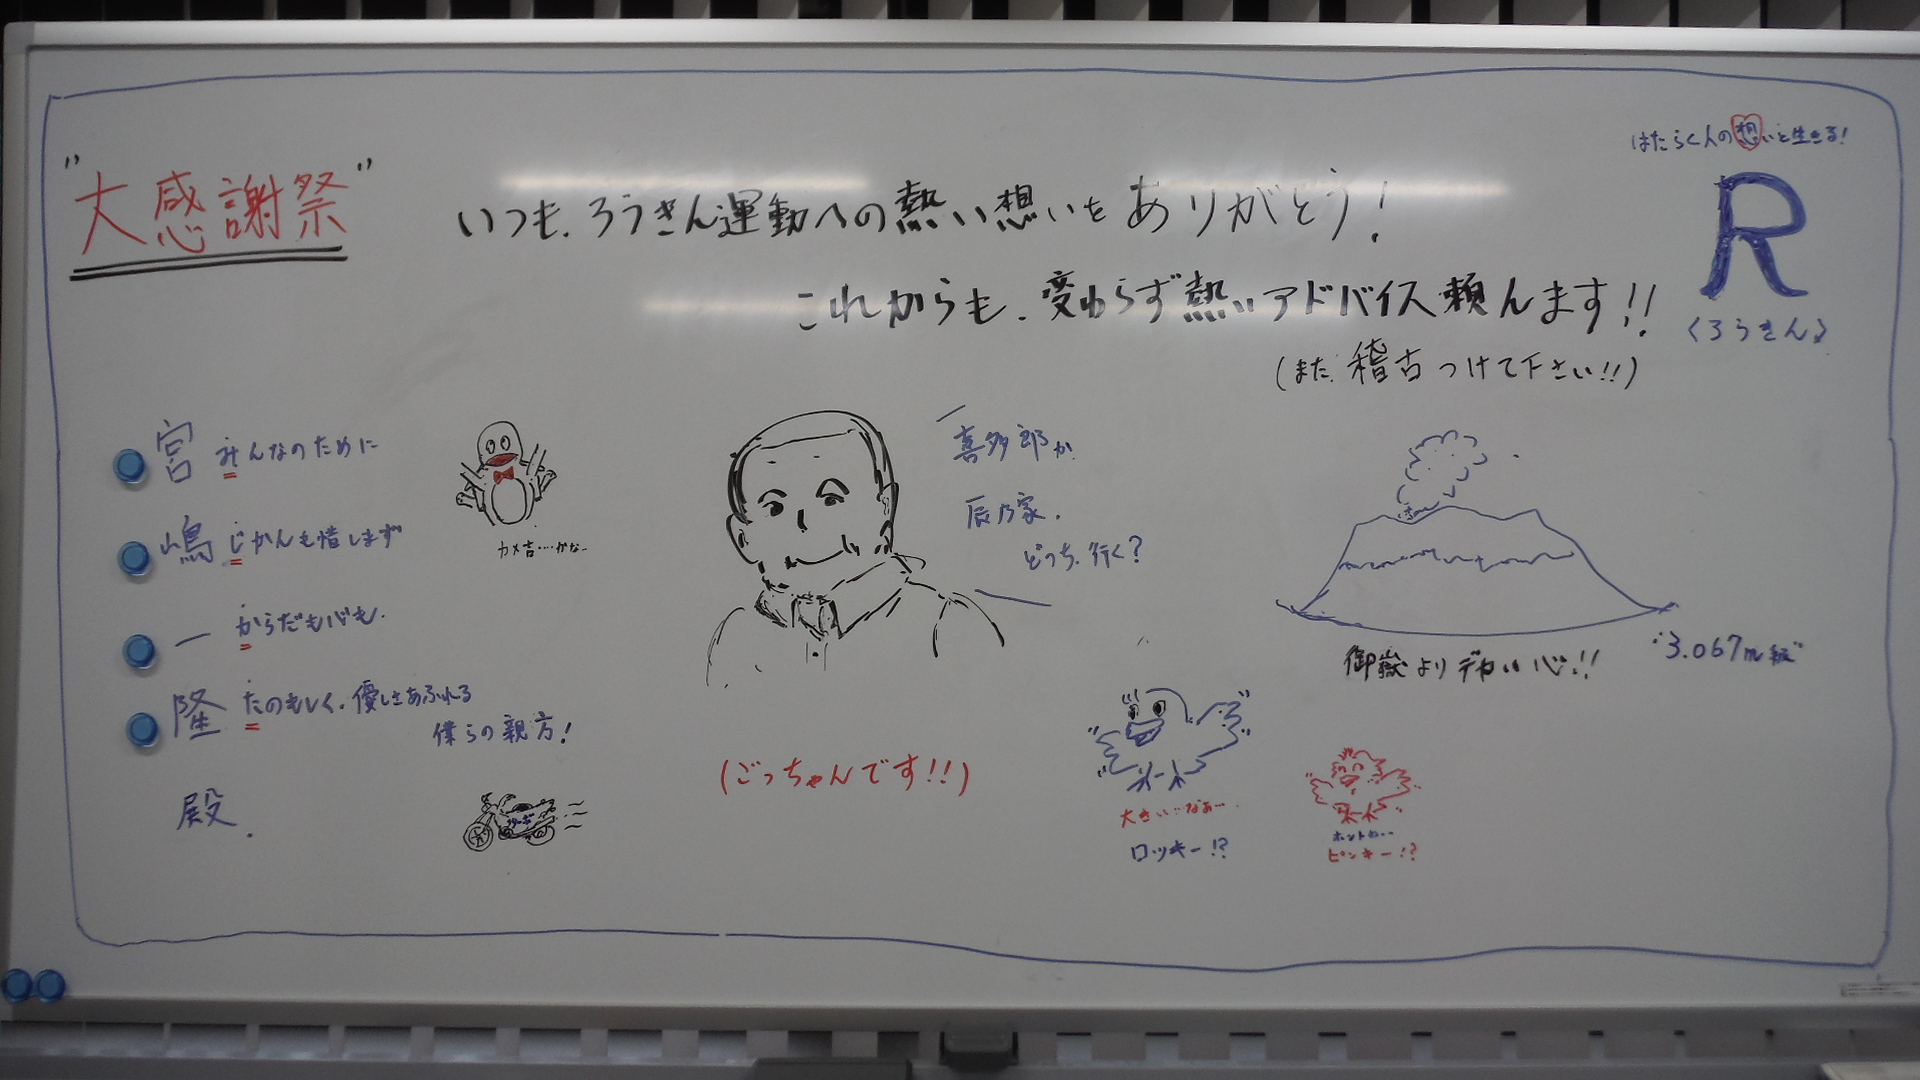 "大感謝祭"
いつも、ろうきん運動への熱い想いをありがとう!
これからも、変わらず熱いアドバイス頼んます!!
(また、稽古つけて下さい!!)
はたらく人の想いと生きる!
R
<ろうきん>
宮 みんなのために
嶋 じかんも惜しまず
一 からだも心も、
隆 たのもしく、優しさあふれる
僕らの親方!
殿
カメ吉…かな〜
喜多郎か
辰乃家、
どっち、行く?
(ごっちゃんです!!)
御嶽よりデカい心!!
"3.067m級"
大きい…なぁ…
ロッキー!?
ホントね…
ピンキー!?